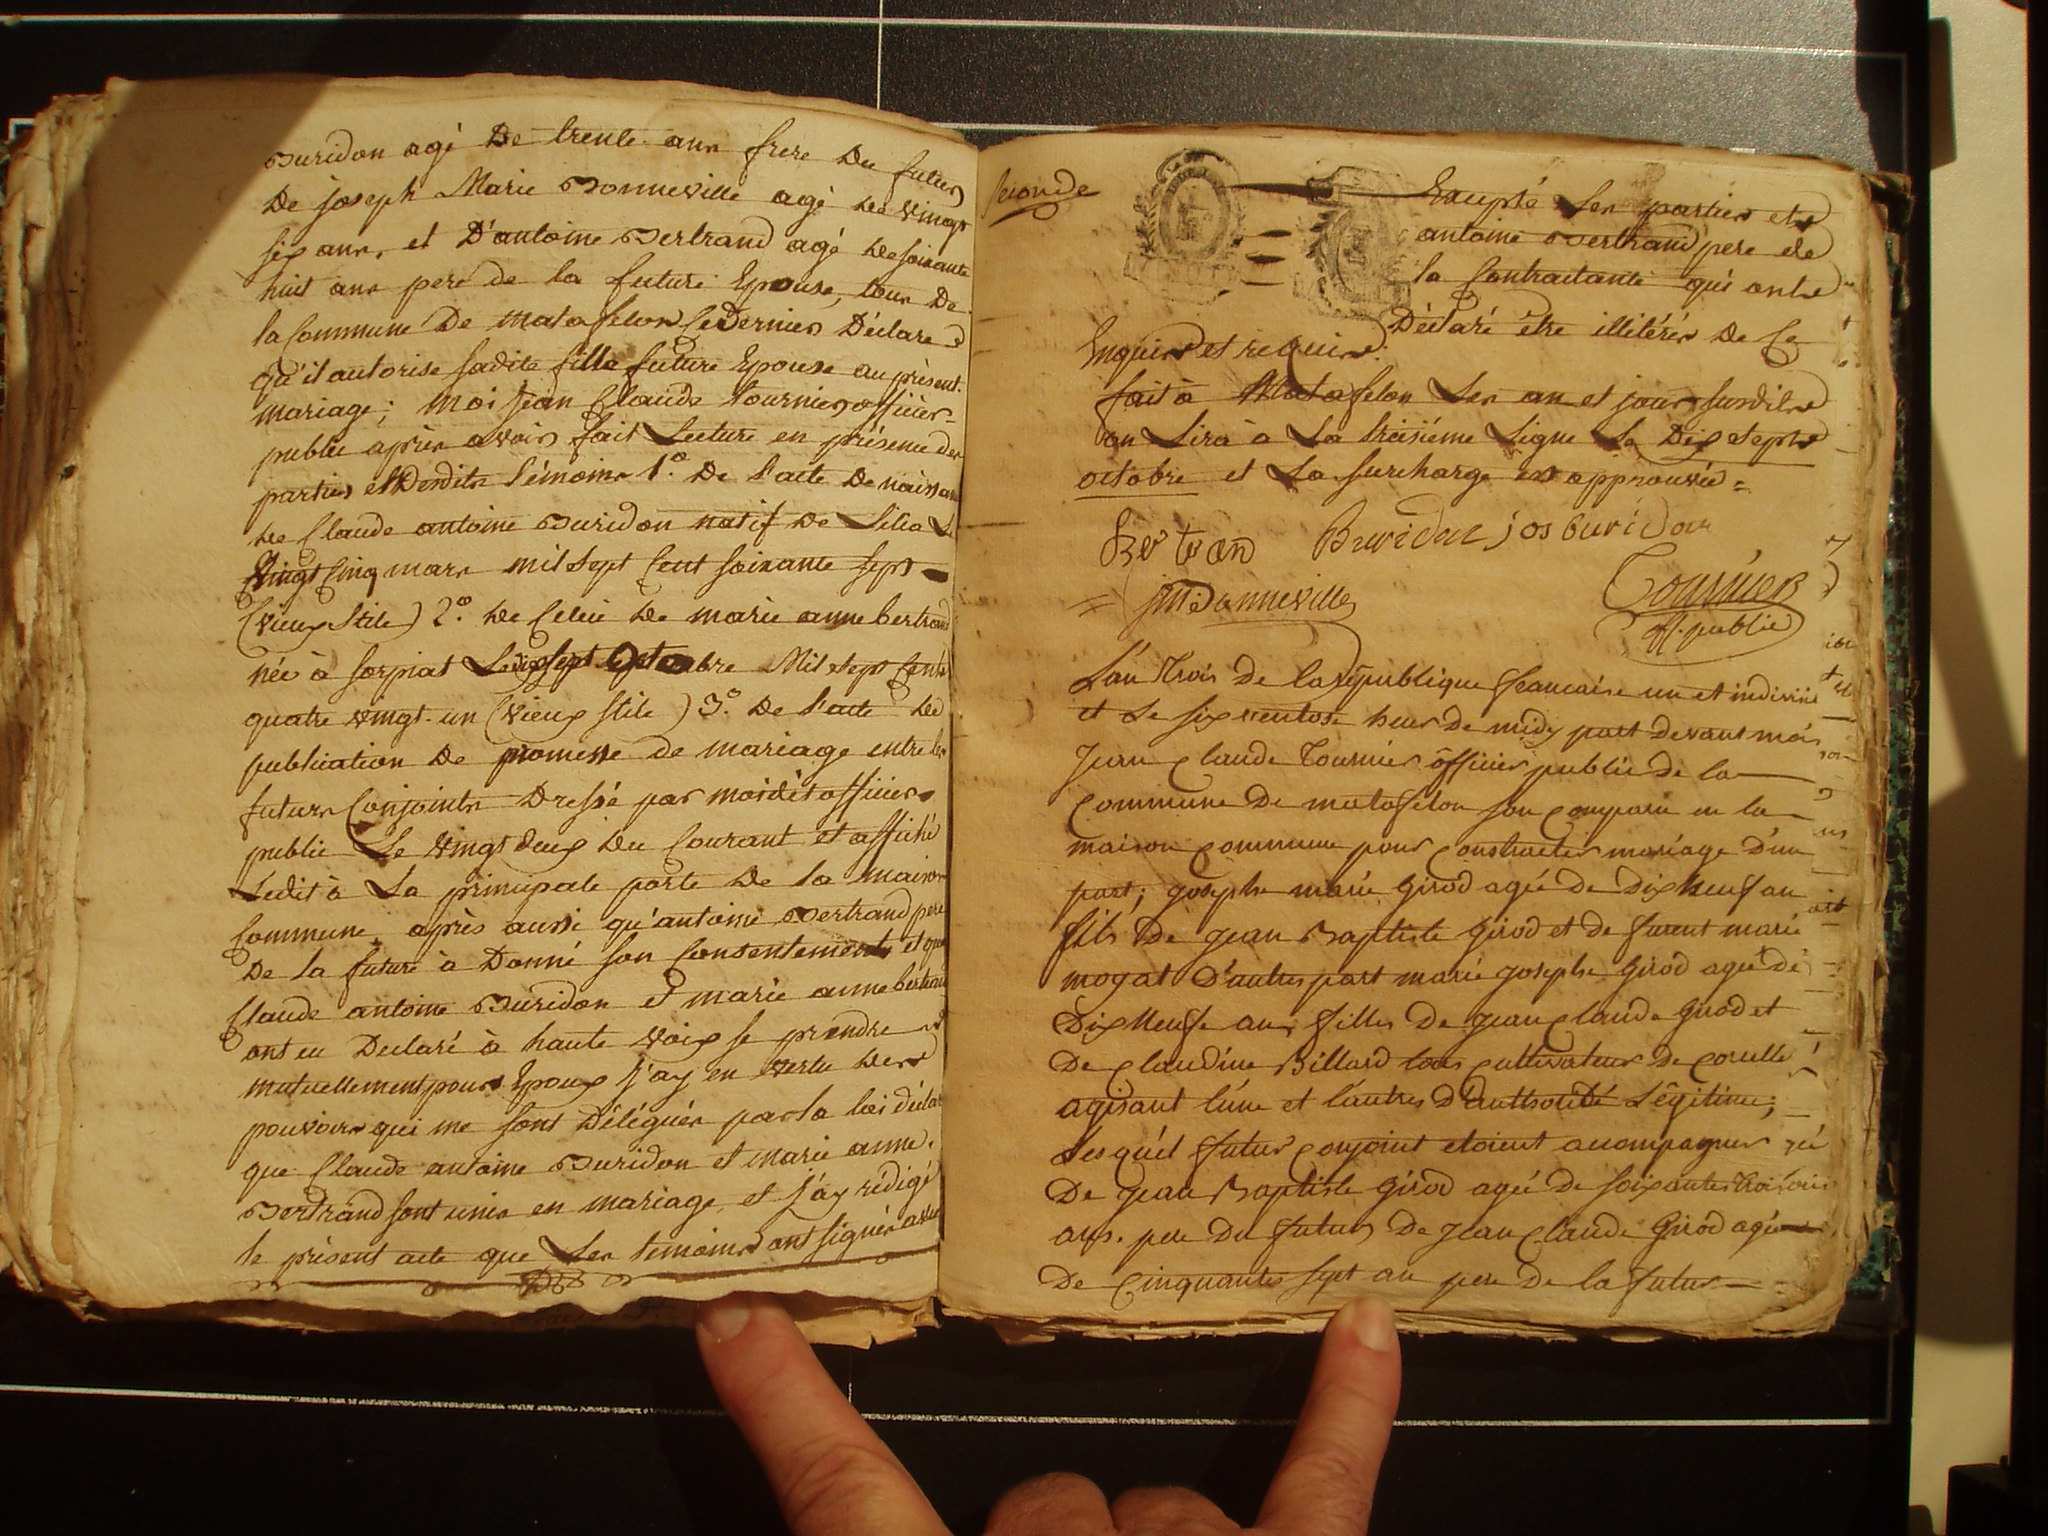 Buridon agé De trente ans frere Du futur
De joseph Marie Bonneville agé de vingt
six ans, et D'antoine Bertrand agé de soixante
huit ans pere de la future Epouse, tous De
la Commune De Matafelon Ce dernier Déclare
qu'il autorise sadite fille future Epouse au présent
mariage; Moi Jean Claude tournier officier
public après avoir fait Lecture en présence des
parties et Desdits témoins 1.° De l'acte De naissance
de Claude antoine Buridon natif de Le
Vingt Cinq mars mil sept Cent soixante sept
(vieux stile) 2.° de Celui de marie anne bertrand
née à sorpiat Le dix sept Octobre Mil sept Cent
quatre vingt-un (vieux stile) 3.° De l'acte de
publication De promesse de mariage entre les
futurs Conjoints Dressé par moidit officier
public Le vingt deux Du Courant et affiché
Ledit à La principale porte De la maison
Commune, après aussi qu'antoine Bertrand pere
De la future à Donné son Consentement et que
Claude antoine Buridon et marie anne bertrand
ont eu Declaré à haute voix se prendre
mutuellement pour Epoux j'ay en vertu des
pouvoirs qui me sont Délégués par la loi déclaré
que Claude antoine Buridon et marie anne
Bertrand sont unis en mariage, et j'ay rédigé
le présent acte que Les temoins ont signés avec
seconde
Excepté Les parties et
antoine Bertrand pere de
la Contractante qui ont
Déclaré être illitérés De Ce
Enquis et requis.
fait à Matafelon Les an et jour susdits
on Lira à La treisiéme Ligne Le Dix sept
octobre et La surcharge est approuvée =
Bertran Buridon jos buridon
= jm Bonneville
Tournier
off. public
L'an Trois de la république francaise un et indivisi
et Le six ventose heur de midy part devant moi
Jean Claude Tournier officier public de la
Commune De matafelon son Comparu en la
maison Commune pour Contracter mariage D'un
part; Joseph marie Girod agée de Dix Neuf an
fils De Jean Baptiste Girod et de marie
mogat D'autres part marie Josephe Girod ageé de
Dix Neufe ans filles De Jean Claude Girod et
De Claudine Billard tous Cultivateur De Corcelle
agisant l'une et l'autres D'autthorité Légitime;
Lesquel futur Conjoint etoient acompagner
De Jean Baptiste Girod ageé De soixantes Trois
ans. pere Du futur De Jean Claude Girod agée
De Cinquantes sept an pere De la futur